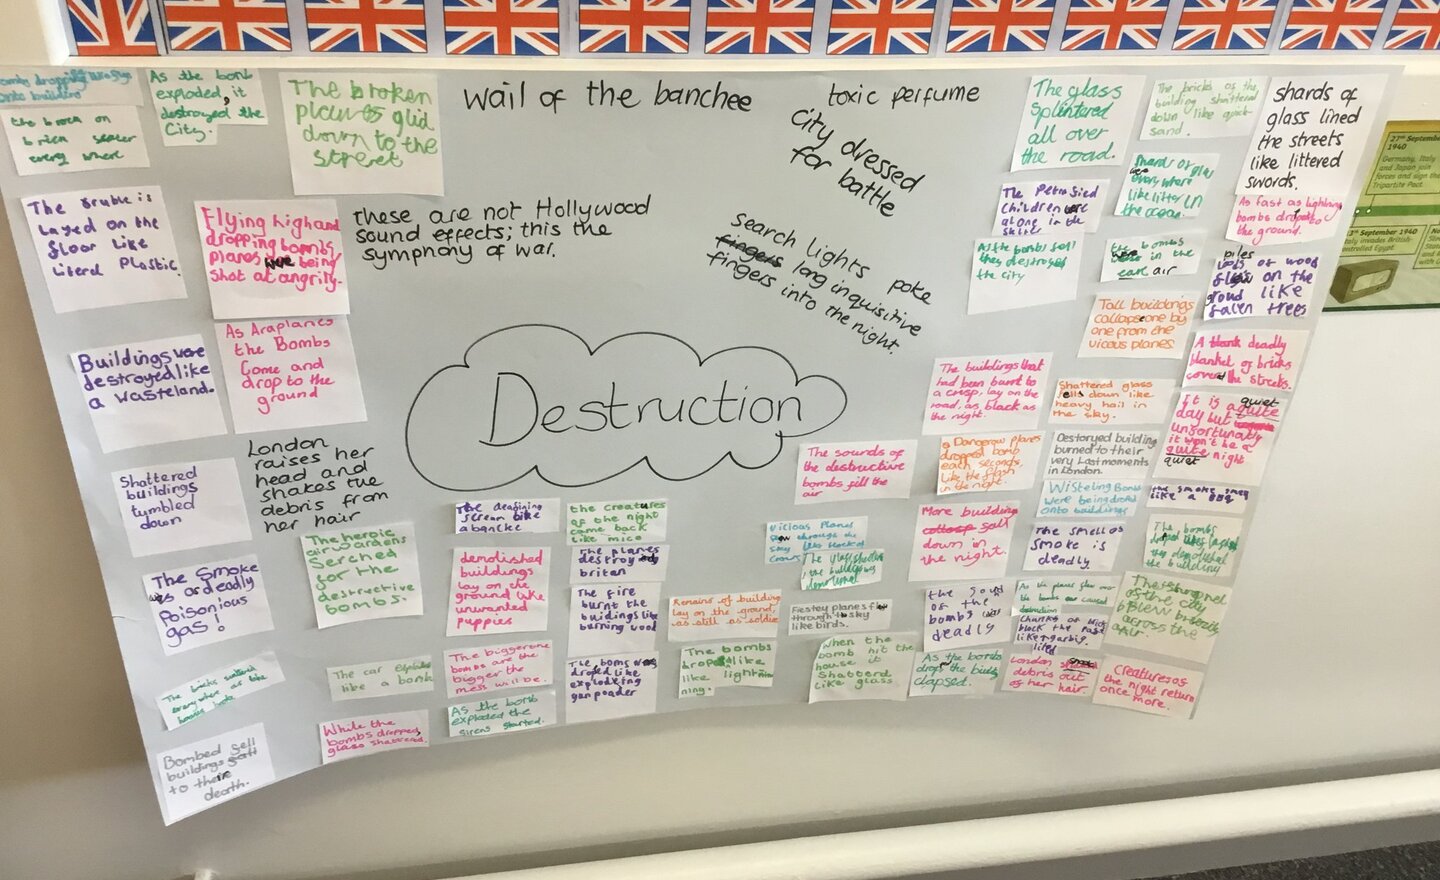 As the bomb
exploded, it
destroyed the
City.
The broken
glid
down to the
street
wail of the banchee
toxic perfume
city dressed
for battle
The glass
splintered
all over
the road.
The bricks of the
building shattered
down like quick
sand.
shards of
glass lined
the streets
like littered
swords.
27th September
1940
Germany, Italy
and Japan join
forces and sign the
Tripartite Pact.
The ruble is
layed on the
floor like
literal plastic.
Flying high and
dropping bombs,
planes were being
shot at angrily.
these are not Hollywood
sound effects; this the
symphony of war.
search lights poke
fingers long inquisitive
fingers into the night.
The Petrosied
children were
alone in the
As the bombs fell
they destroyed
the city
everywhere
like litter in
the ocean.
the bombs
were in the
air
As fast as lightning
bombs dropped to
the ground.
13th September 1940
piles
of wood
on the
groud like
falen trees
Tall buildings
collapse one by
one from the
vicous planes
A blank deadly
blanket of bricks
covered the streets.
As Araplanes
the Bombs
Come and
drop to the
ground
Buildings were
destroyed like
a wasteland.
Destruction
The buildings that
had been burnt to
a crisp, lay on the
road, as black as
the night.
Shattered glass
fells down like
heavy hail in
the sky.
It is a quite quiet
day but
unfortunatly
it won't be a
quite night
quiet
London
raises her
head and
shakes the
debris from
her hair
Shattered
buildings
tumbled
down
The sounds of
the destructive
bombs fill the
air
Dangerous planes
dropped bomb
each seconds,
Like the flash
in the night.
Destoryed building
burned to their
very Last moments
in London.
Wisteling Bombs
were being droped
onto buildings
the smoke
like a
The deafining
scream like
a bancke
the creatures
of the night
came back
like mice
The heroic
air wardens
Serched
for the
destructive
bombs.
demolished
buildings
lay on the
ground like
unwanted
puppies
The planes
destroyed
britan
The fire
burnt the
buildings like
burning wood
Vicious Planes
through the
sky like
More building
collosp sell
down in
the night.
The smell of
smoke is
deadly
The bombs
they demolished
the buildings
The smoke
was as deadly
Poisonious
gas!
Remains of building
lay on the ground,
as still as soldier
planes flew
through to sky
like birds.
the
of the
bombs was
deadly
As the planes flew over
the bombs
destruction
Chunks of brick
block the
like
The shrapnel
of the city
Blew
across the
air
The car
like a bomb
The biggerone
bombs are the
bigger the
mess will be.
The boms
droped like
exploding
gun pouder
The bombs
drop like
like lightnin
ning.
When the
bomb hit the
house it
Shatterd
like glass
As the bombs
drop the
clapsed.
London
debris out
of her hair.
lifted
Creatures of
the night return
once more.
While the
bombs dropped,
glass shattered.
As the bomb
exploded the
sirens started.
Bombed sell
buildings
to their
death.